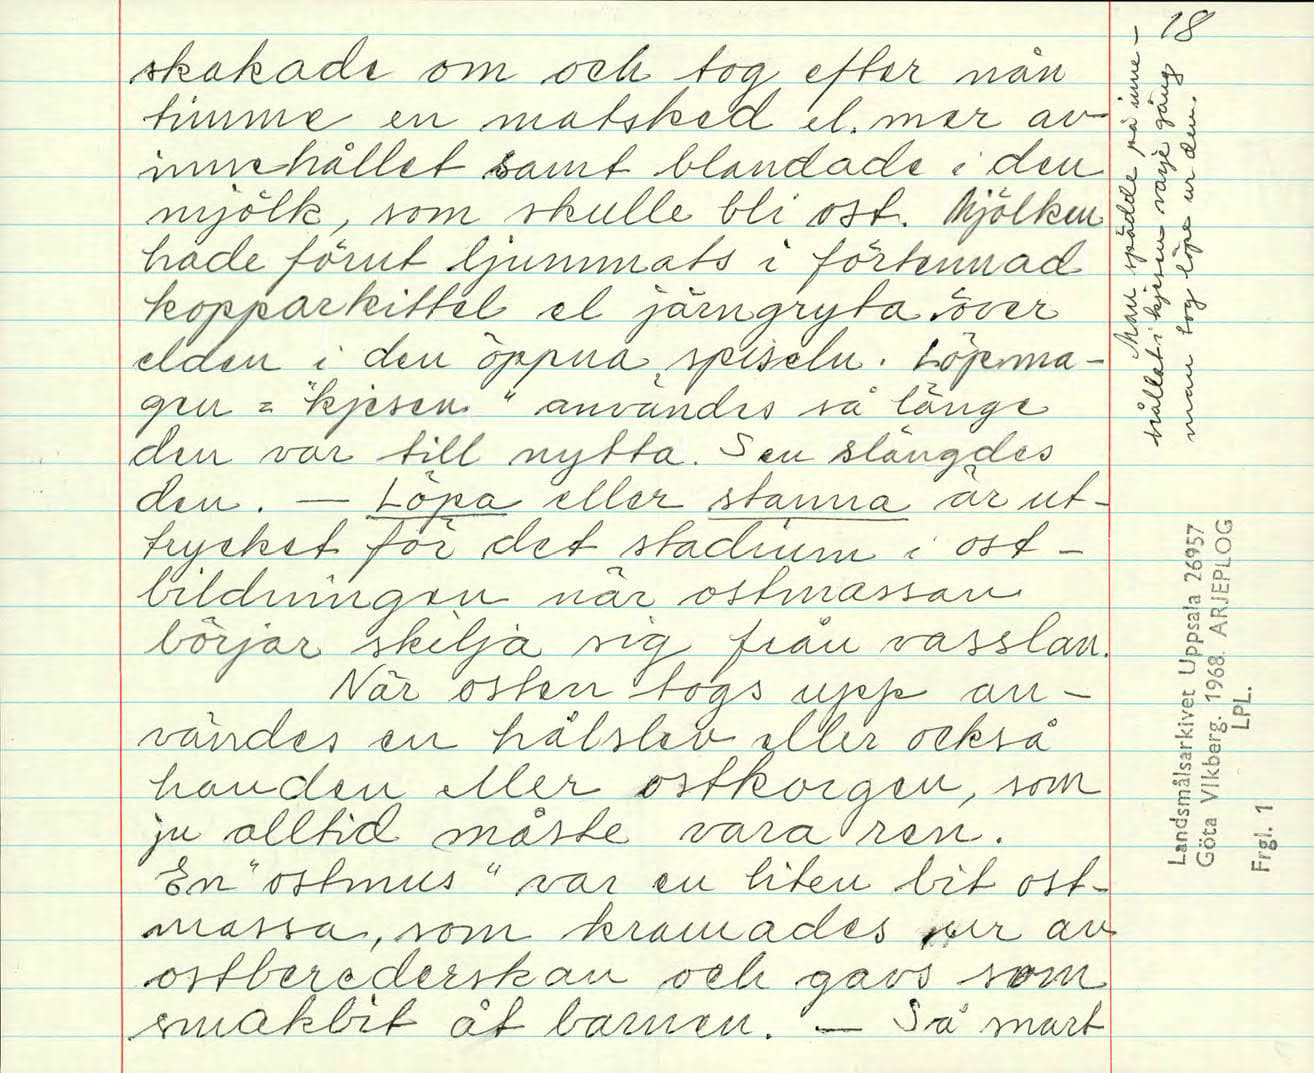 18
skakade om och tog efter nån
timme en matsked el. mer av
innehållet samt blandade i den
mjölk, som skulle bli ost. Mjölken
hade förut ljummats i förtennad
kopparkittel el järngryta över
elden i den öppna spiseln. Löpma-
gen = "kjesen" användes så länge
den var till nytta. Sen slängdes
den. — Löpa eller stanna är ut-
trycket för det stadium i ost-
bildningen när ostmassan
börjar skilja sig från vasslan.
När osten togs upp an-
vändes en hålslev eller också
handen eller ostkorgen, som
ju alltid måste vara ren.
En "ostmus" var en liten bit ost-
massa, som kramades ur av
ostberederskan och gavs som
smakbit åt barnen. — Så snart
Man spädde på inne-
hållet i kjesen varje gång
man tog löpe ur den.
Landsmålsarkivet Uppsala 26957
Göta Vikberg. 1968. ARJEPLOG
LPL.
Frgl. 1